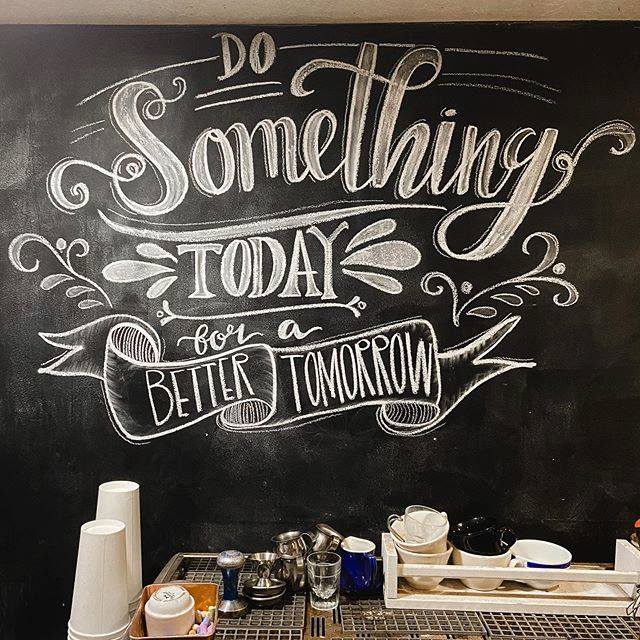 DO
Something
TODAY
for a
BETTER TOMORROW